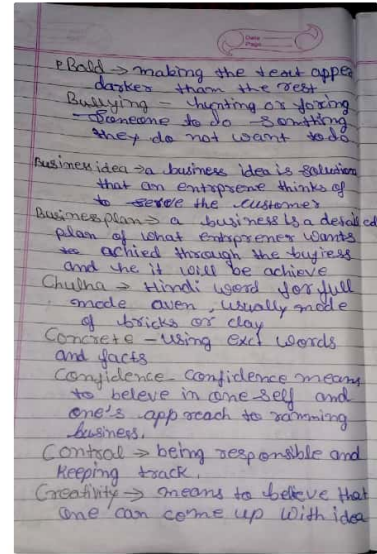 Date
Page
Bold → making the text appe
darker than the rest
Bullying – hunting or foring
Someone to do Somthing
they do not want to do
Business idea → a business idea is salution
that an entrprene thinks of
to serve the customer
Business plan → a business is a detailed
plan of what entrprener wants
to achied through the bugress
and he it will be achieve
Chulha → Hindi word for full
mode oven, usually mode
of bricks or clay
Concrete – using exct words
and facts
Confidence – confidence means
to beleve in one self and
one's app reach to ramming
business.
Control → being responsible and
keeping track.
Creativity → means to believe that
one can come up with idea